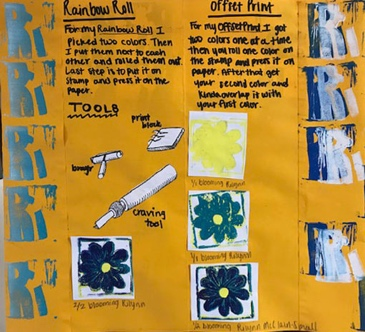 Rainbow Roll
For my Rainbow Roll I
Picked two colors. Then
I put them next to each
other and rolled them out.
Last step is to put it on
stamp and press it on the
paper.
TOOLS
print
block
brayer
craving
tool
2/2 blooming Rilynn
Offset Print
For my OffsetPrint I got
two colors one at a time
then you roll one color on
the stamp and press it on
paper. After that get
your second color and
kinda overlap it with
your first color.
1/1 blooming Rilynn
1/1 blooming Rilynn
1/2 blooming Rilynn McClain-Small
R.
R.
R.
R.
R.
R.
R.
R.
R.